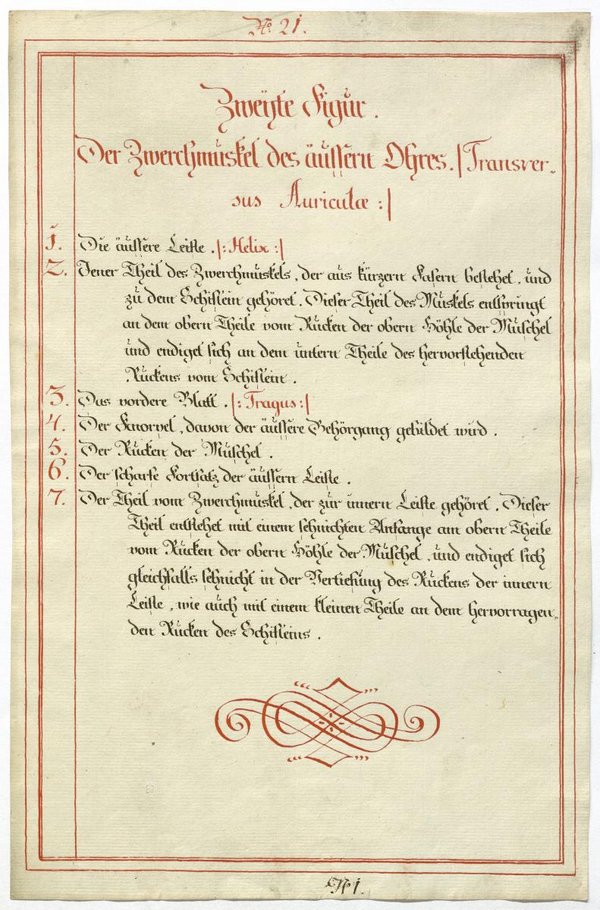 No 21.
Zweyte Figur.
Der Zwerchmuskel des äussern Ohres. /Transver-
sus Auriculæ :/
1. Die äussere Leiste. /: Helix :/
2. Jener Theil des Zwerchmuskels, der aus kürzern Fasern bestehet, und
zu dem Schiflein gehöret. Dieser Theil des Muskels entspringt
an dem obern Theile vom Rücken der obern Höhle der Muschel
und endiget sich an dem untern Theile des hervorstehenden
Rückens vom Schiflein.
3. Das vordere Blatt. /: Tragus :/
4. Der Knorpel, davon der äussere Gehörgang gebildet wird.
5. Der Rücken der Muschel.
6. Der scharfe Fortsatz der äussern Leiste.
7. Der Theil vom Zwerchmuskel, der zur innern Leiste gehöret. Dieser
Theil entstehet mit einem sehnichten Anfange am obern Theile
vom Rücken der obern Höhle der Muschel, und endiget sich
gleichfalls sehnicht in der Vertiefung des Rückens der innern
Leiste, wie auch mit einem kleinen Theile an dem hervorragen-
den Rücken des Schifleins.